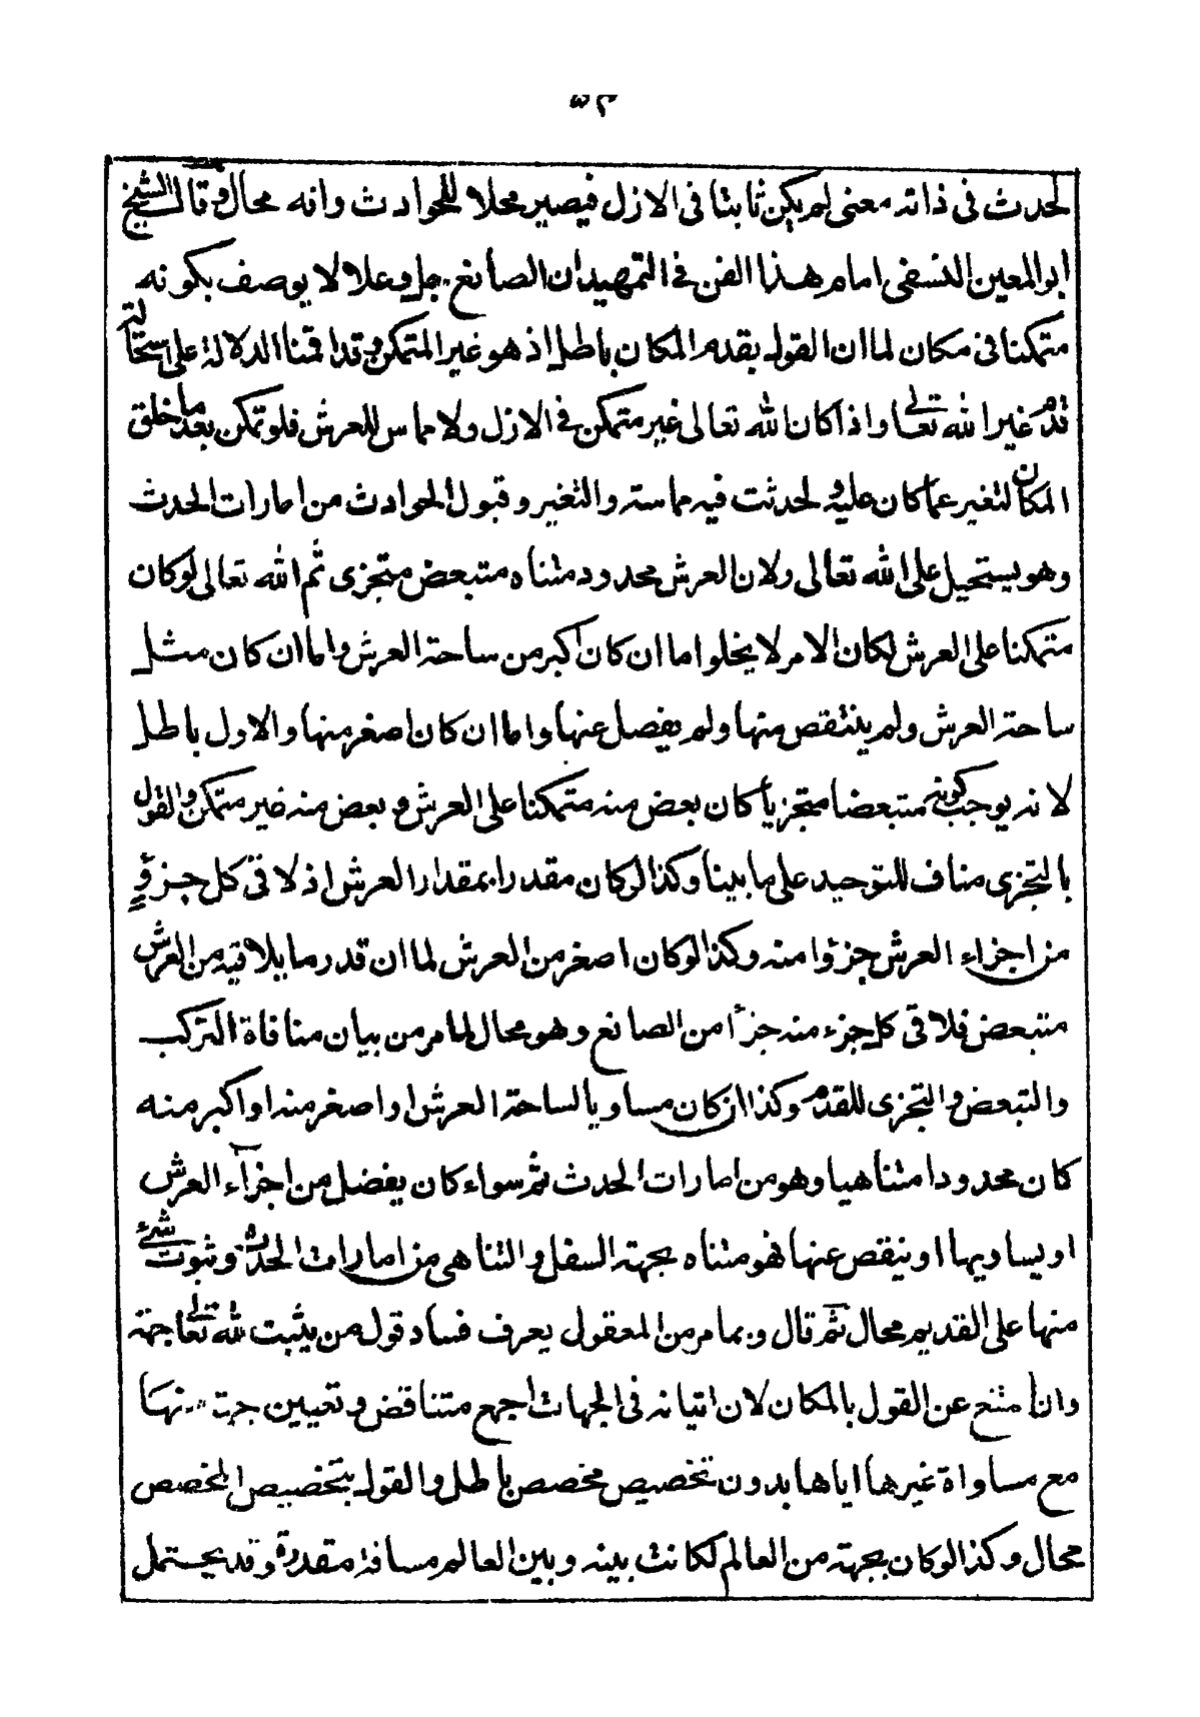 ٥٣
لحدث فى ذاته معنى لم يكن ثابتا فى الازل فيصير محلا للحوادث وانه محال وقال الشيخ
ابو المعين النسفى امام هذا الفن فى التمهيد ان الصانع جل وعلا لا يوصف بكونه
متمكنا فى مكان لما ان القول بقدم المكان باطل اذ هو غير المتمكن وقد اقمنا الدلالة على استحالة
قدم غير الله تعالى واذا كان الله تعالى غير متمكن فى الازل ولا مماس للعرش فلو تمكن بعد ما خلق
المكان لتغير عما كان عليه ولحدثت فيه مماسته والتغير وقبول الحوادث من امارات الحدث
وهو يستحيل على الله تعالى ولان العرش محدود متناه متبعض متجزى ثم الله تعالى لو كان
متمكنا على العرش لكان الامر لا يخلو اما ان كان اكبر من ساحة العرش واما ان كان مثل
ساحة العرش ولم ينتقص منها ولم يفصل عنها واما ان كان اصغر منها والاول باطل
لانه يوجب كونه متبعضا متجزيا كان بعض منه متمكنا على العرش وبعض منه غير متمكن والقول
بالتجزى مناف للتوحيد على ما بينا وكذا لو كان مقدرا بمقدار العرش اذ لاقى كل جزؤ
من اجزاء العرش جزؤا منه وكذا لو كان اصغر من العرش لما ان قدر ما يلاقيه من العرش
متبعض فلاقى كل جزء منه جزأ من الصانع وهو محال لما مر من بيان منافاة التركب
والتبعض والتجزى للقدم وكذا ان كان مساويا لساحة العرش او اصغر منه او اكبر منه
كان محدودا متناهيا وهو من امارات الحدث ثم سواء كان يفضل من اجزاء العرش
او يساويها او ينقص عنها فهو متناه بجهة السفل والتناهى من امارات الحدث وثبوت شئ
منها على القديم محال ثم قال وبما مر من المعقول يعرف فساد قول من يثبت لله تعالى جهة
وان امتنع عن القول بالمكان لان اتيانه فى الجهات اجمع متناقض وتعيين جهة منها
مع مساواة غيرها اياها بدون تخصيص مخصص باطل والقول بتخصيص المخصص
محال وكذا لو كان بجهة من العالم لكانت بينه وبين العالم مسافة متقدرة وقد يحتمل